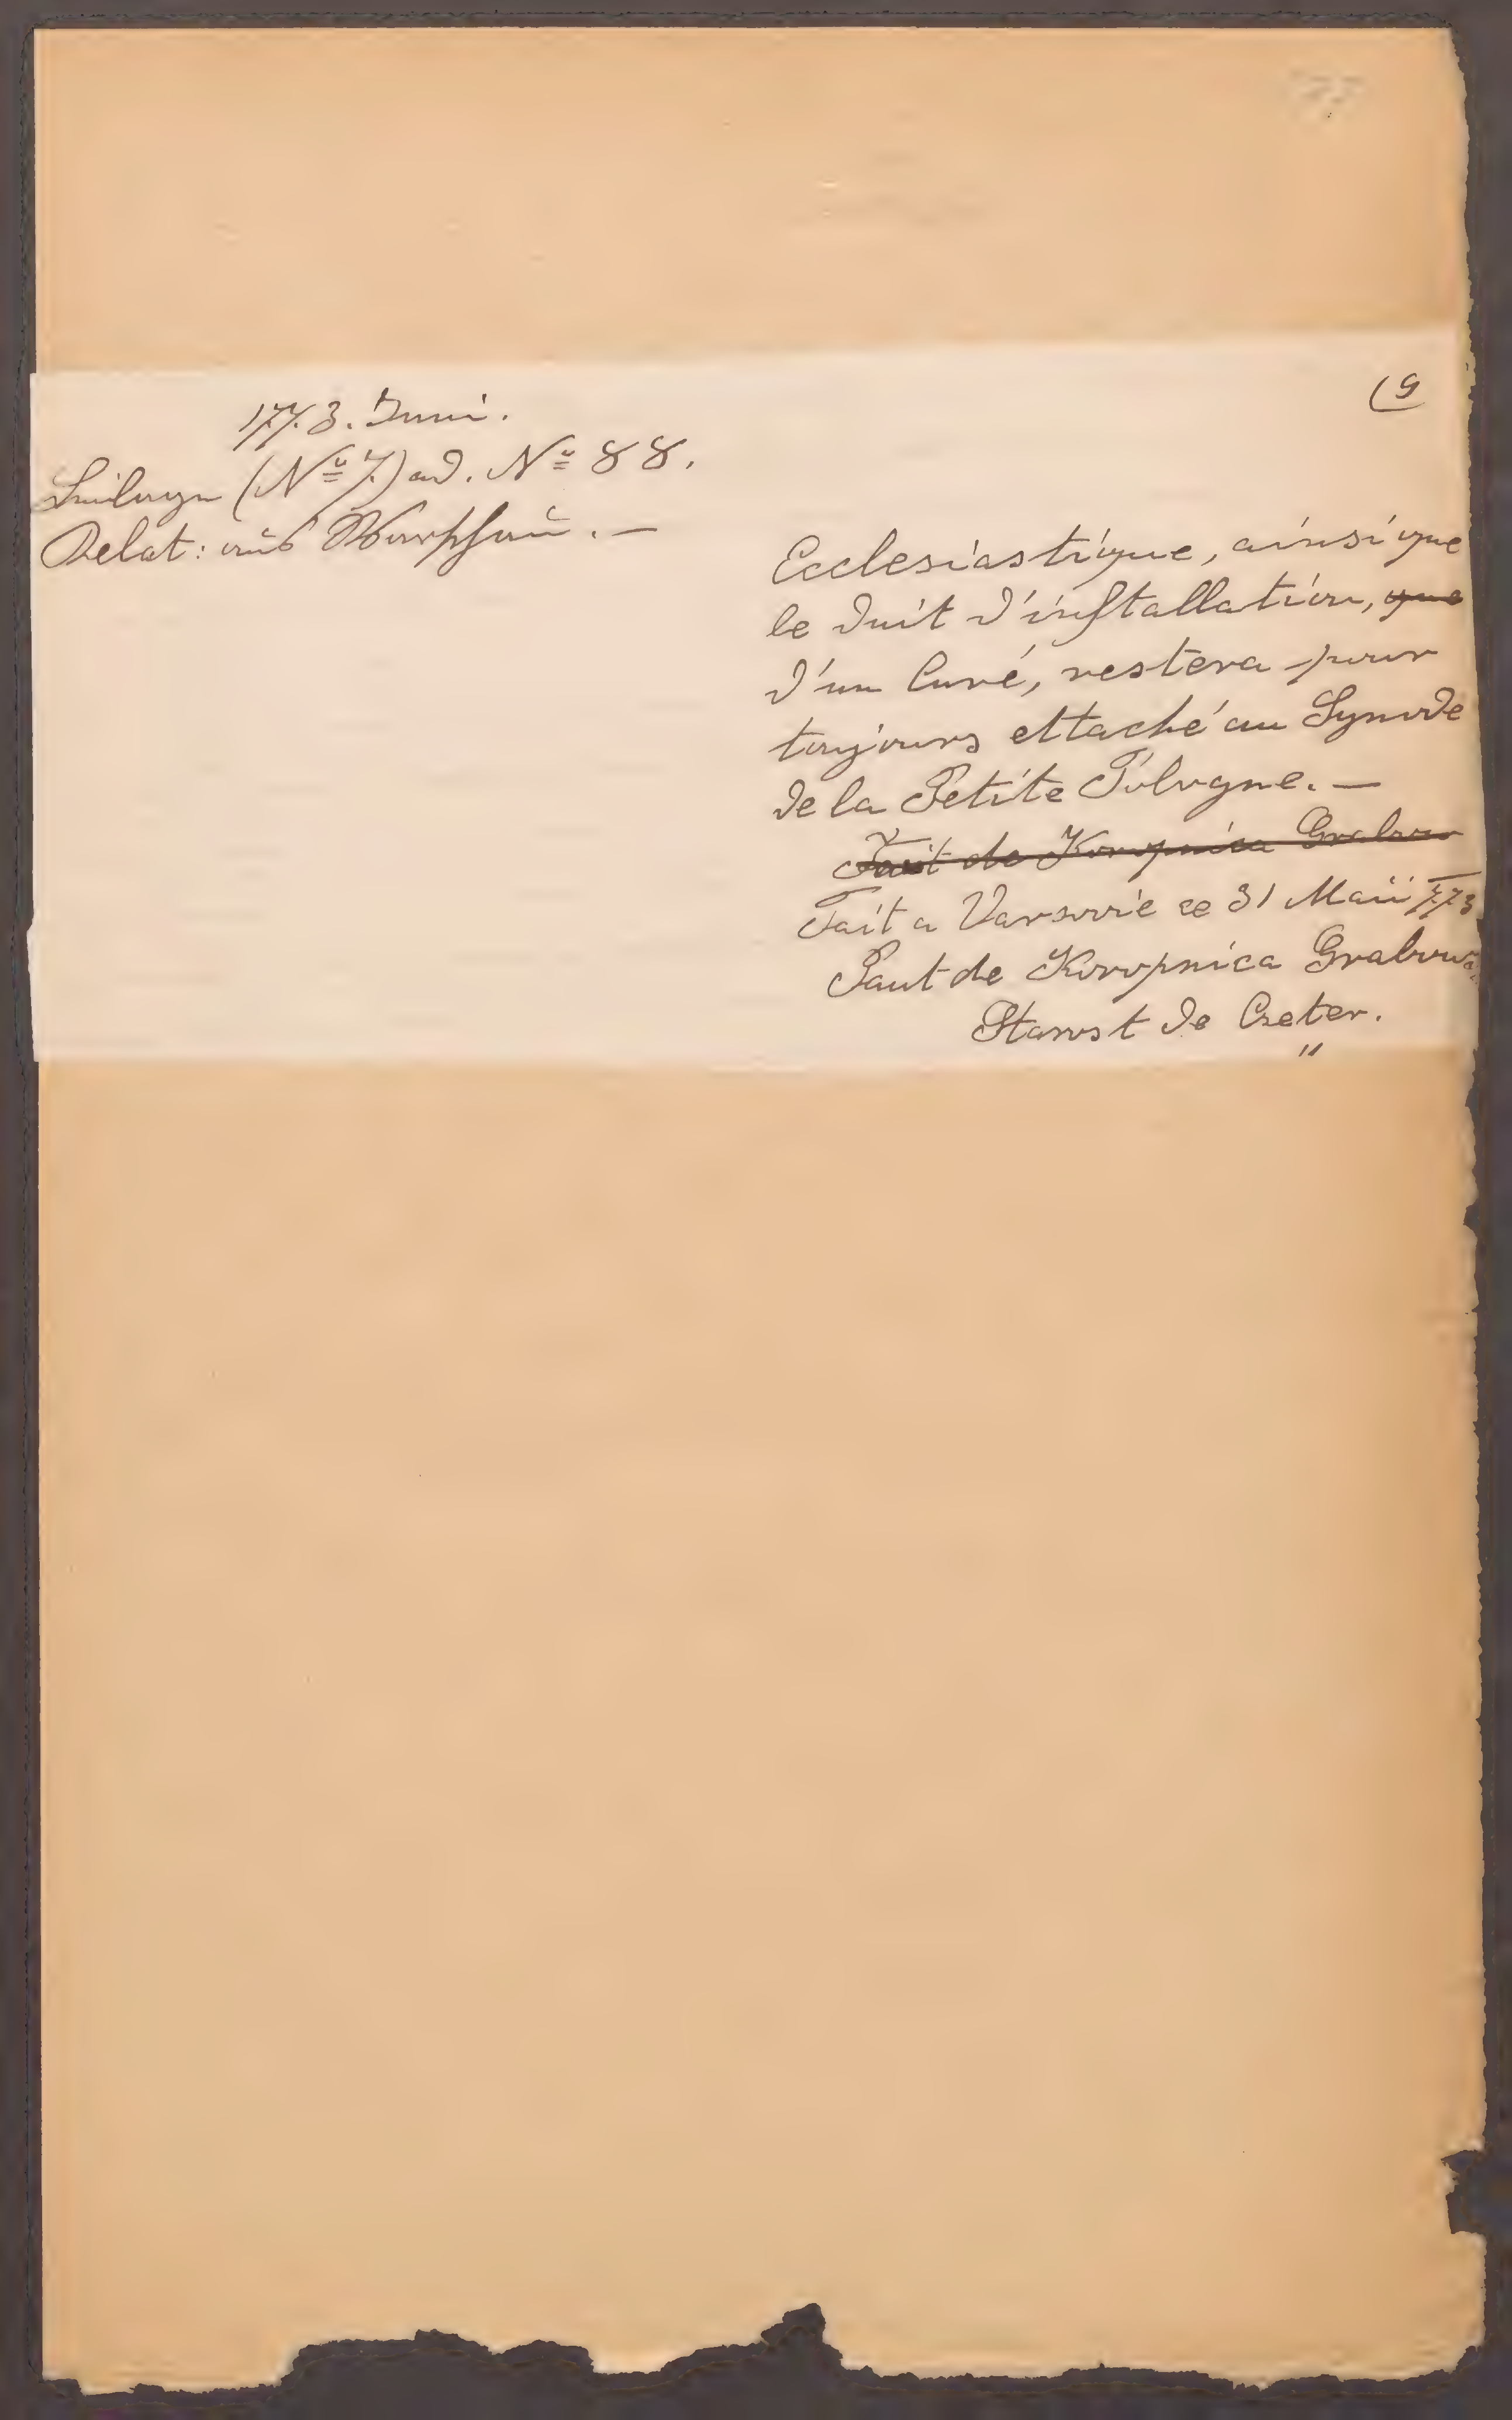 (9
1773. Juni.
Beilage (No 7.) ad. No 88.
Relat: aus Warschau. —
Ecclesiastique, ainsi que
le Droit d'installation, que
d'un Curé, restera pour
toujours attaché au Synode
de la Petite Pologne. —
de Koropnica Grabow
Fait a Varsovie ce 31 Maii 773
Paul de Koropnica
Starost de Czeter.